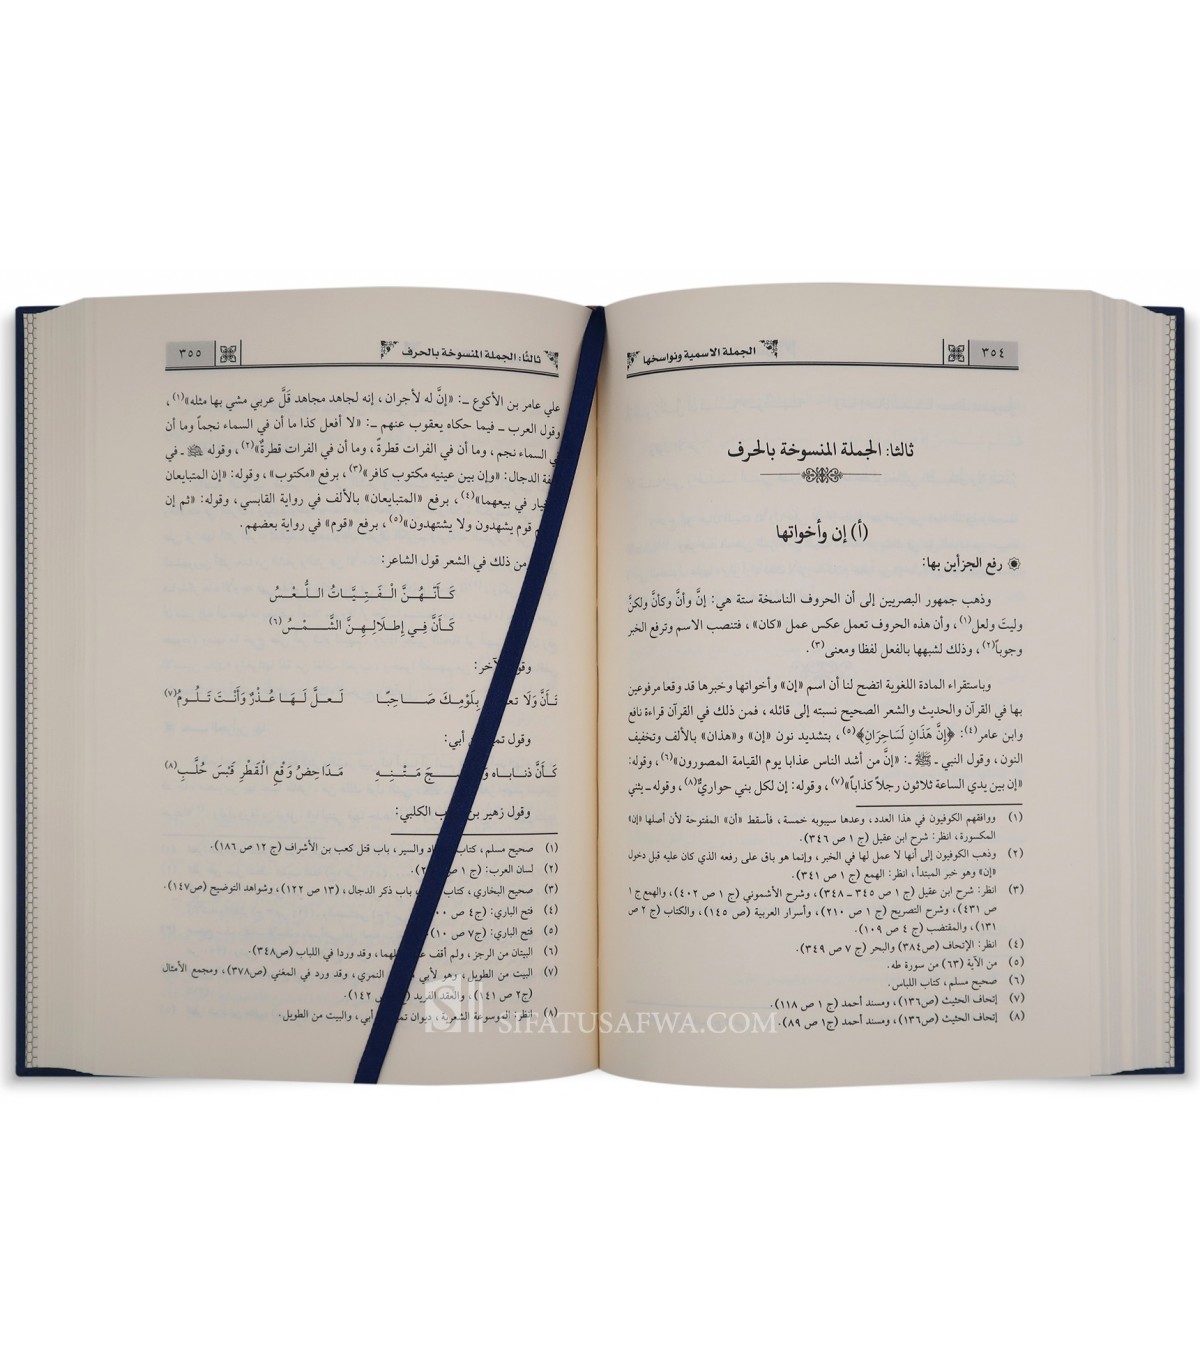 ٣٥٤
الجملة الاسمية ونواسخها
ثالثا: الجملة المنسوخة بالحرف
(أ) إن وأخواتها
رفع الجزأين بها:
وذهب جمهور البصريين إلى أن الحروف الناسخة ستة هي: إنَّ وأنَّ وكأنَّ ولكنَّ
وليتَ ولعل(١)، وأن هذه الحروف تعمل عكس عمل «كان»، فتنصب الاسم وترفع الخبر
وجوباً(٢)، وذلك لشبهها بالفعل لفظا ومعنى(٣).
وباستقراء المادة اللغوية اتضح لنا أن اسم «إن» وأخواتها وخبرها قد وقعا مرفوعين
بها في القرآن والحديث والشعر الصحيح نسبته إلى قائله، فمن ذلك في القرآن قراءة نافع
وابن عامر(٤): ﴿إِنَّ هَذَانِ لَسَاحِرَانِ﴾(٥)، بتشديد نون «إن» و«هذان» بالألف وتخفيف
النون، وقول النبي ـ ﷺ ـ: «إنَّ من أشد الناس عذابا يوم القيامة المصورون»(٦)، وقوله:
«إن بين يدي الساعة ثلاثون رجلاً كذاباً»(٧)، وقوله: إن لكل بني حواريٌّ(٨)، وقوله ـ يثني
(١) ووافقهم الكوفيون في هذا العدد، وعدها سيبويه خمسة، فأسقط «أن» المفتوحة لأن أصلها «إن»
المكسورة، انظر: شرح ابن عقيل (ج ١ ص ٣٤٦).
(٢) وذهب الكوفيون إلى أنها لا عمل لها في الخبر، وإنما هو باق على رفعه الذي كان عليه قبل دخول
«إن» وهو خبر المبتدأ، انظر: الهمع (ج ١ ص ٣٤١).
(٣) انظر: شرح ابن عقيل (ج ١ ص ٣٤٥ ـ ٣٤٨)، وشرح الأشموني (ج ١ ص ٤٠٢)، والهمع ج ١
ص ٤٣١)، وشرح التصريح (ج ١ ص ٢١٠)، وأسرار العربية (ص ١٤٥)، والكتاب (ج ٢ ص
١٣١)، والمقتضب (ج ٤ ص ١٠٩).
(٤) انظر: الإتحاف (ص ٣٨٤) والبحر (ج ٧ ص ٣٤٩).
(٥) من الآية (٦٣) من سورة طه.
(٦) صحيح مسلم، كتاب اللباس.
(٧) إتحاف الحثيث (ص١٣٦)، ومسند أحمد (ج ١ ص ١١٨).
(٨) إتحاف الحثيث (ص١٣٦)، ومسند أحمد (ج١ ص ٨٩).
ثالثًا: الجملة المنسوخة بالحرف
٣٥٥
علي عامر بن الأكوع ـ: «إنَّ له لأجران، إنه لجاهد مجاهد قَلَّ عربي مشي بها مثله»(١)،
وقول العرب ـ فيما حكاه يعقوب عنهم ـ: «لا أفعل كذا ما أن في السماء نجماً وما أن
في السماء نجم، وما أن في الفرات قطرةً، وما أن في الفرات قطرةٌ»(٢)، وقوله ﷺ ـ في
الدجال: «وإن بين عينيه مكتوب كافر»(٣)، برفع «مكتوب»، وقوله: «إن المتبايعان
في بيعهما»(٤)، برفع «المتبايعان» بالألف في رواية القابسي، وقوله: «ثم إن
قوم يشهدون ولا يشتهدون»(٥)، برفع «قوم» في رواية بعضهم.
من ذلك في الشعر قول الشاعر:
كَـأَنَّهُـنَّ الْـفَـتِيَّـاتُ الـلُّـعْـسُ
كَـأَنَّ فِـي إِطْلَالِـهِـنَّ الشَّـمْـسُ (٦)
تَـأَنَّ وَلَا بِلَوْمِـكَ صَـاحِـبًـا لَـعـلَّ لَـهَـا عُـذْرٌ وَأَنْـتَ تَـلُـومُ(٧)
وقول أبي:
كَـأَنَّ ذنـابـاه مَـتْـنِـهِ مَدَاحِضُ وَقْعِ الْقَطْرِ قَبْسَ حُلَّبِ(٨)
وقول زهير الكلبي:
(١) صحيح مسلم، كتاب والسير، باب قتل كعب بن الأشراف (ج ١٢ ص ١٨٦).
(٢) لسان العرب: (ج ١
(٣) صحيح البخاري، كتاب باب ذكر الدجال، (١٣ ص ١٢٢)، وشواهد التوضيح (ص١٤٧).
(٤) فتح الباري: (ج٤ ص
(٥) فتح الباري: (ج٧ ص
(٦) البيتان من الرجز، ولم أقف وقد وردا في اللباب (ص٣٤٨).
(٧) البيت من الطويل، وهو لأبي النمري، وقد ورد في المغني (ص٣٧٨)، ومجمع الأمثال
(ج٢ ص ١٤١)، والعقد الفريد (ج ١٤٢).
(٨) انظر: الموسوعة الشعرية، ديوان أبي، والبيت من الطويل.
SIFATUSAFWA.COM